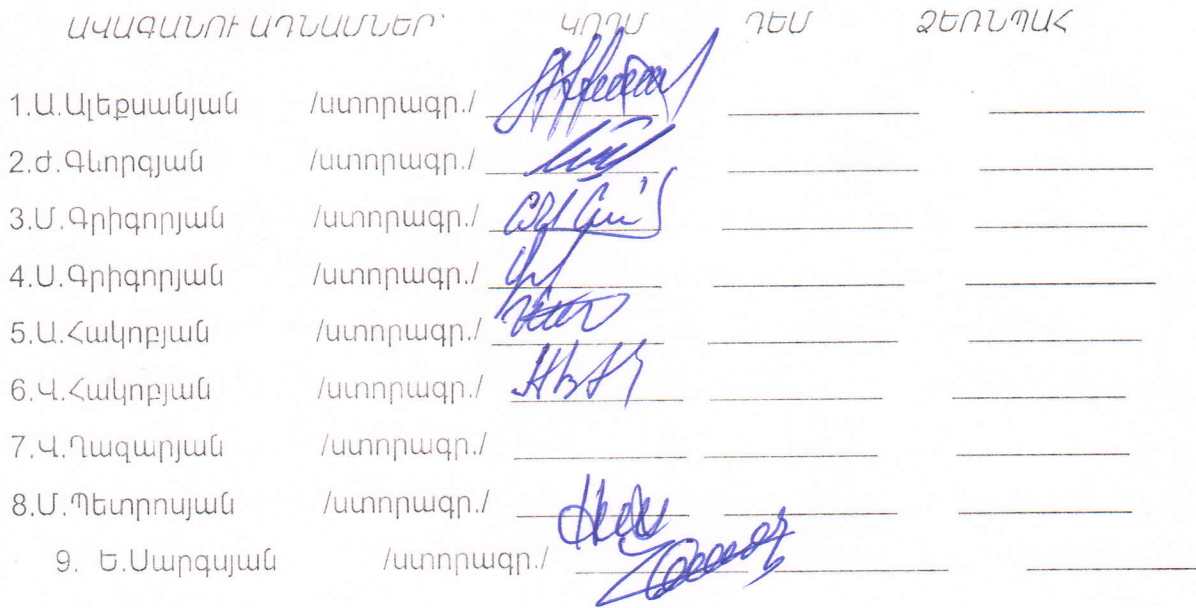 ԱՎԱԳԱՆՈՒ ԱՆԴԱՄՆԵՐ՝ ԿՈՂՄ ԴԵՄ ՁԵՌՆՊԱՀ
1.Ա.Ալեքսանյան /ստորագր./
2.Ժ.Գևորգյան /ստորագր./
3.Մ.Գրիգորյան /ստորագր./
4.Ս.Գրիգորյան /ստորագր./
5.Ա.Հակոբյան /ստորագր./
6.Վ.Հակոբյան /ստորագր./
7.Վ.Ղազարյան /ստորագր./
8.Մ.Պետրոսյան /ստորագր./
9. Ե.Սարգսյան /ստորագր./